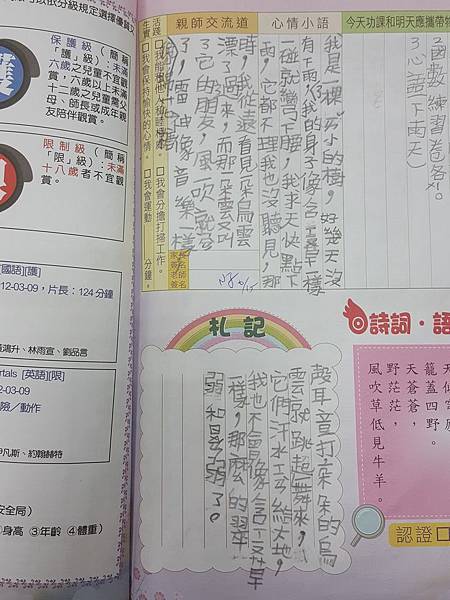 可以依分級規定選擇優質
保護級（簡稱
「護」級）：未滿
六歲之兒童不宜觀
賞，六歲以上未滿
十二歲之兒童需父
母、師長或成年親
友陪伴觀賞。
限制級（簡稱
「限」級）：未滿
十八歲者不宜觀
賞。
[國語][護]
12-03-09，片長：124 分鐘
鴻升、林雨宣、劉品言
rtals [英語][限]
2-03-09
險／動作
凡斯、約翰赫特
安全局）
②身高 ③年齡 ④體重）
今天功課和明天應攜帶物
國數練習卷各1。
心語（下雨天）
心情小語
我是一棵小小的樹，好幾天沒
有下雨，我的身子像含羞草一樣
一碰就彎下腰，我求天快點下
雨，它都不理我也沒聽見，那
時，我從遠看見朵朵烏雲
漂了過來，而那一朵雲又叫
了它的朋友，風一吹就
了，雷神像音樂一樣，
親師交流道
生活實踐
□我能和他人和睦相處。
□我會保持愉快的心情。
□我會分擔打掃工作。
□我會運動　　分鐘。
札記
殼耳音打朵朵的烏
雲就跳起舞來，
它們汗水至給大地，
我也不會像含羞草
一樣，那麼的翠
弱和是弱了。
詩詞・語
籠蓋四野。
天蒼蒼，
野茫茫，
風吹草低見牛羊。
認證□